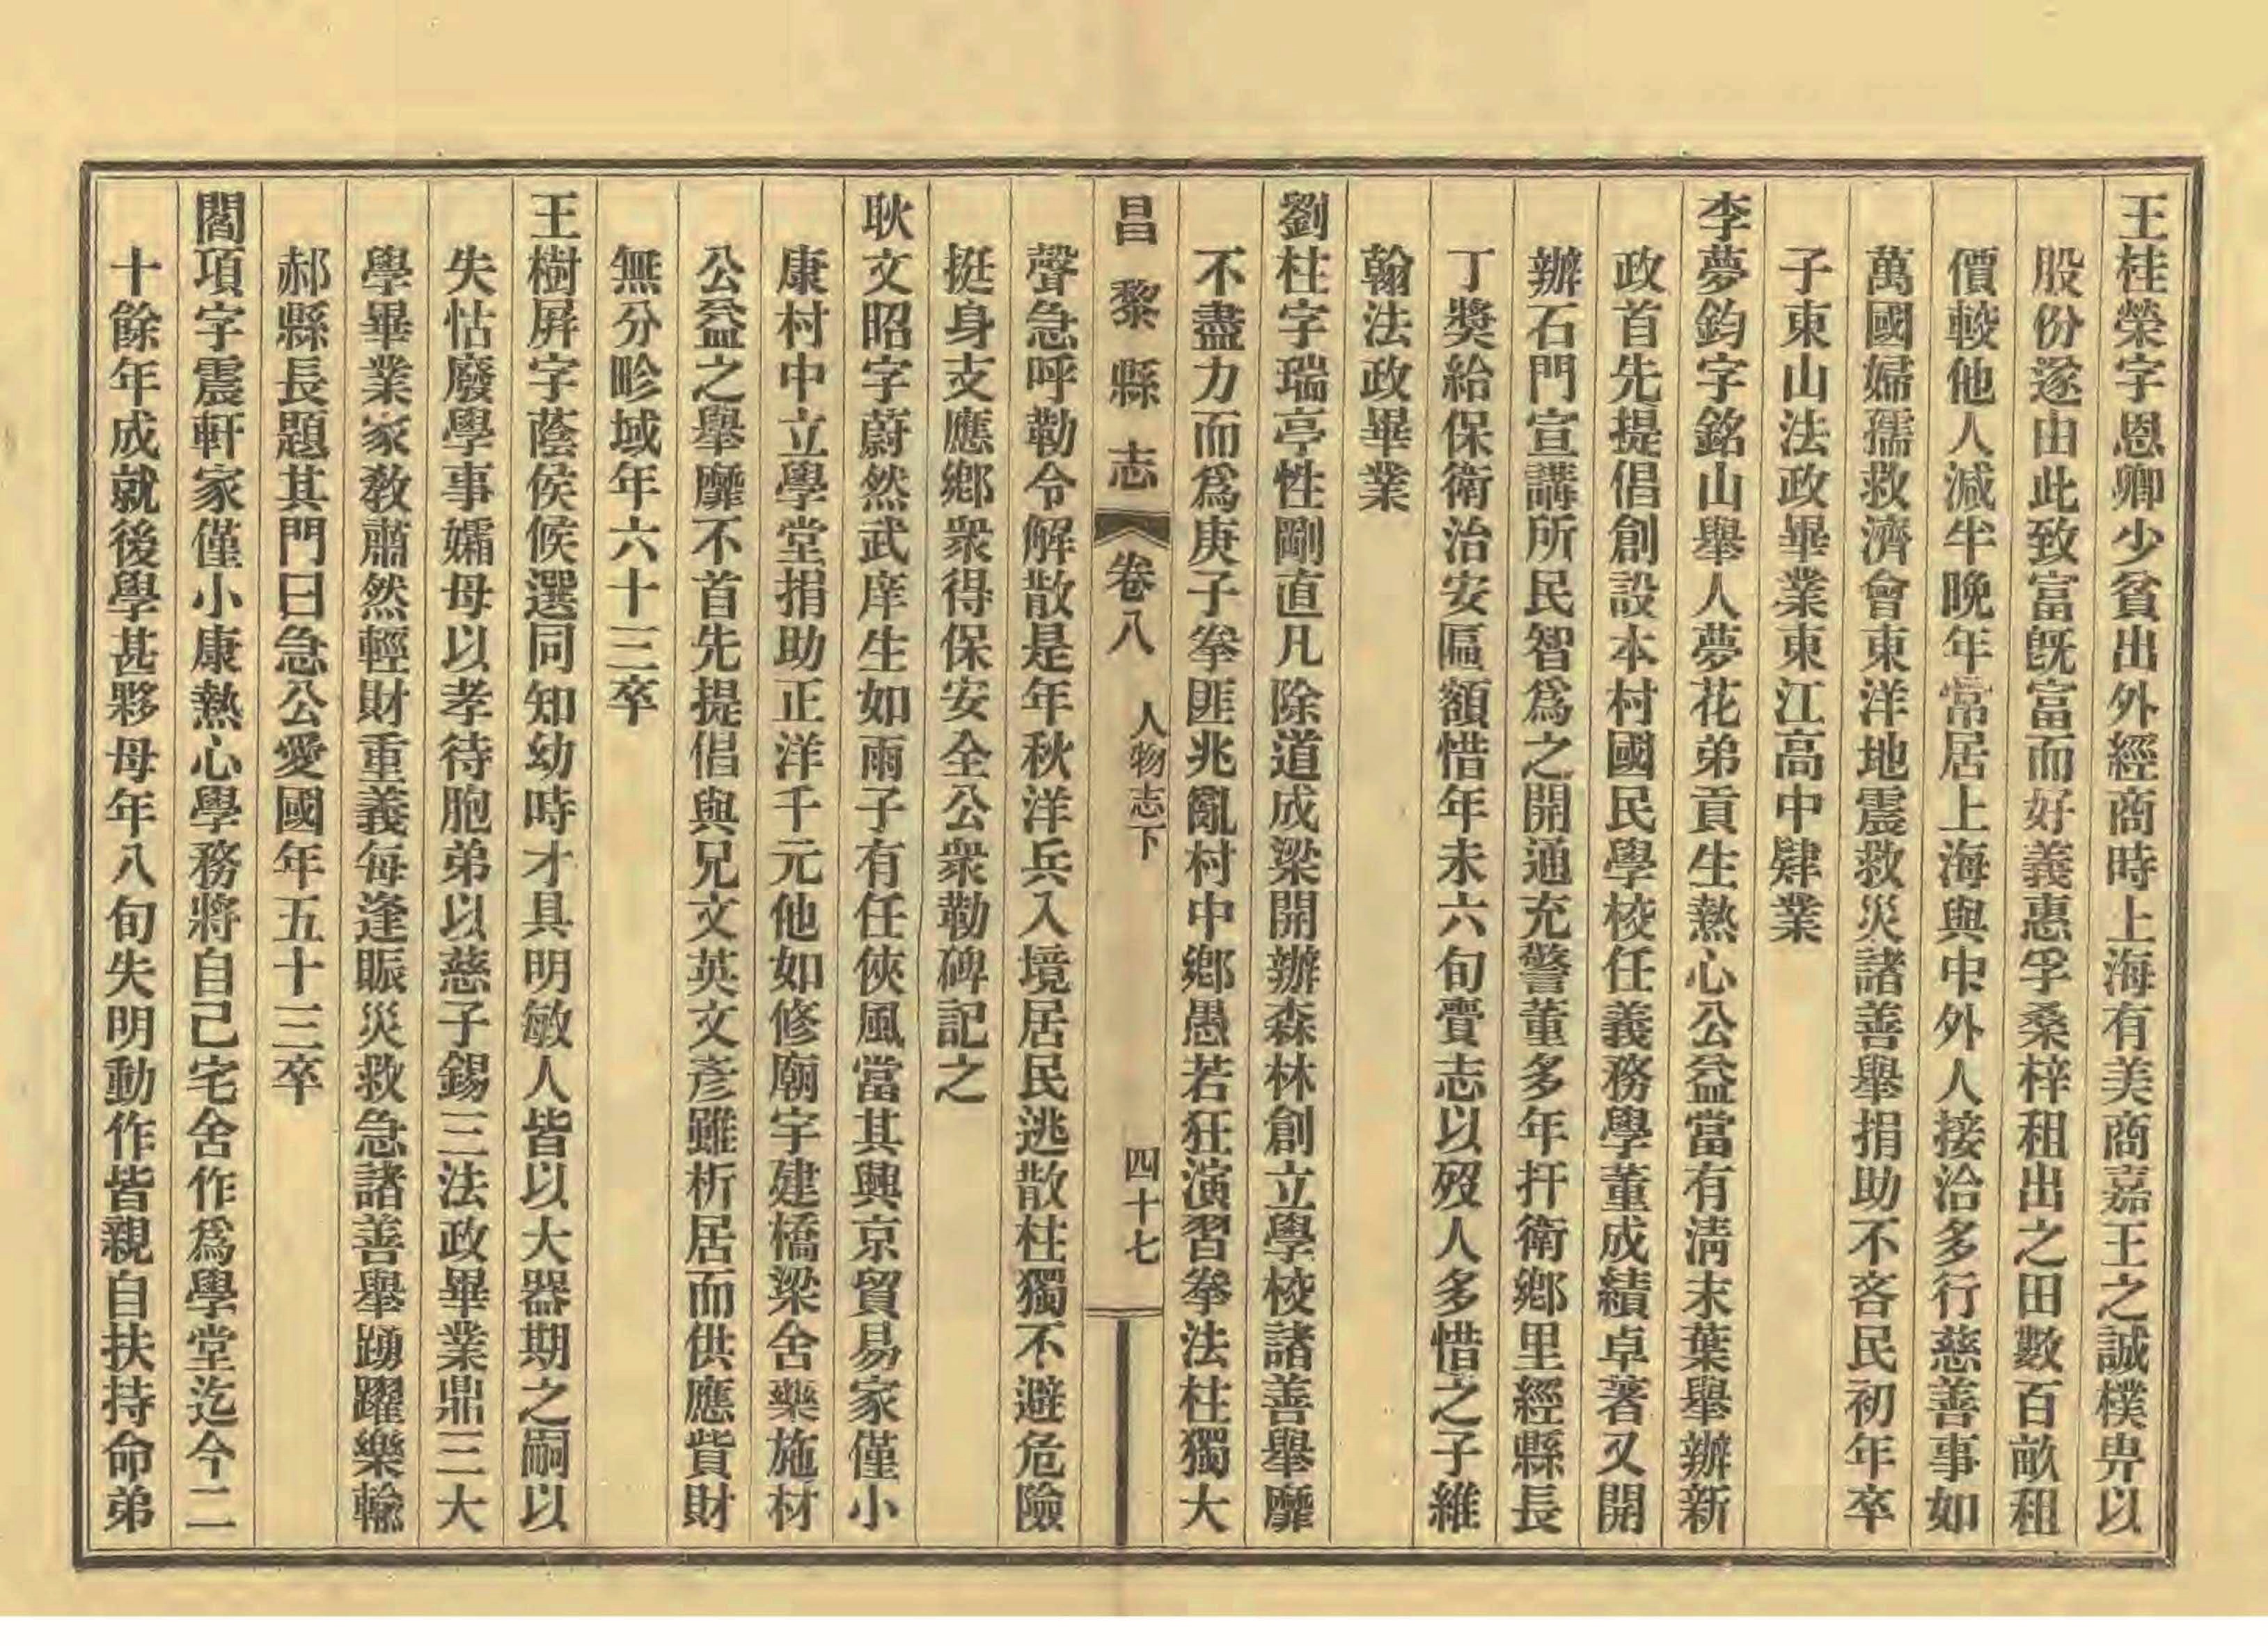 王桂榮字恩卿少貧出外經商時上海有美商嘉王之誠樸畀以
股份遂由此致富旣富而好義惠孚桑梓租出之田數百畝租
價較他人減半晚年常居上海與中外人接洽多行慈善事如
萬國婦孺救濟會東洋地震救災諸善舉捐助不吝民初年卒
子東山法政畢業東江高中肄業
李夢鈞字銘山舉人夢花弟貢生熱心公益當有淸末葉舉辦新
政首先提倡創設本村國民學校任義務學董成績卓著又開
辦石門宣講所民智爲之開通充警董多年扞衛鄉里經縣長
丁獎給保衛治安匾額惜年未六旬賫志以歿人多惜之子維
翰法政畢業
劉柱字瑞亭性剛直凡除道成梁開辦森林創立學校諸善舉靡
不盡力而爲庚子拳匪兆亂村中鄉愚若狂演習拳法柱獨大
昌黎縣志 卷八 人物志下 四十七
聲急呼勒令解散是年秋洋兵入境居民逃散柱獨不避危險
挺身支應鄉衆得保安全公衆勒碑記之
耿文昭字蔚然武庠生如雨子有任俠風當其興京貿易家僅小
康村中立學堂捐助正洋千元他如修廟宇建橋梁舍藥施材
公益之舉靡不首先提倡與兄文英文彥雖析居而供應貲財
無分畛域年六十三卒
王樹屏字蔭侯候選同知幼時才具明敏人皆以大器期之嗣以
失怙廢學事孀母以孝待胞弟以慈子錫三法政畢業鼎三大
學畢業家敎肅然輕財重義每逢賑災救急諸善舉踴躍樂輸
郝縣長題其門曰急公愛國年五十三卒
閻項字震軒家僅小康熱心學務將自己宅舍作爲學堂迄今二
十餘年成就後學甚夥母年八旬失明動作皆親自扶持命弟